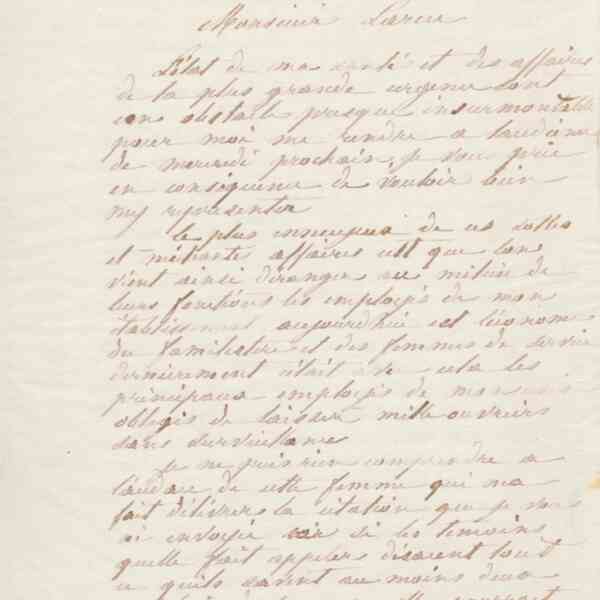 Monsieur Lareu
L'état de ma santé et des affaires
de la plus grande urgence sont
un obstacle presque insurmontable
pour moi me rendre a laudience
de mercredi prochain, je vous prie
en consequence de vouloir bien
my representer
Le plus ennuyeux de ces sottes
et méchantes affaires est que lon
vient ainsi déranger au milieu de
leurs fonctions les employés de mon
établissement aujourdhui est léconome
du familistere et des femmes de service
dernierement était avec cela les
principaux employés de mon usine
obligés de laisser mille ouvriers
sans surveillance
Je ne puis rien comprendre a
laudace de cette femme qui ma
fait délivrer la citation que je vous
ai envoyée car si les temoins
quelle fait appeler disaient tout
ce quils savent au moins deux